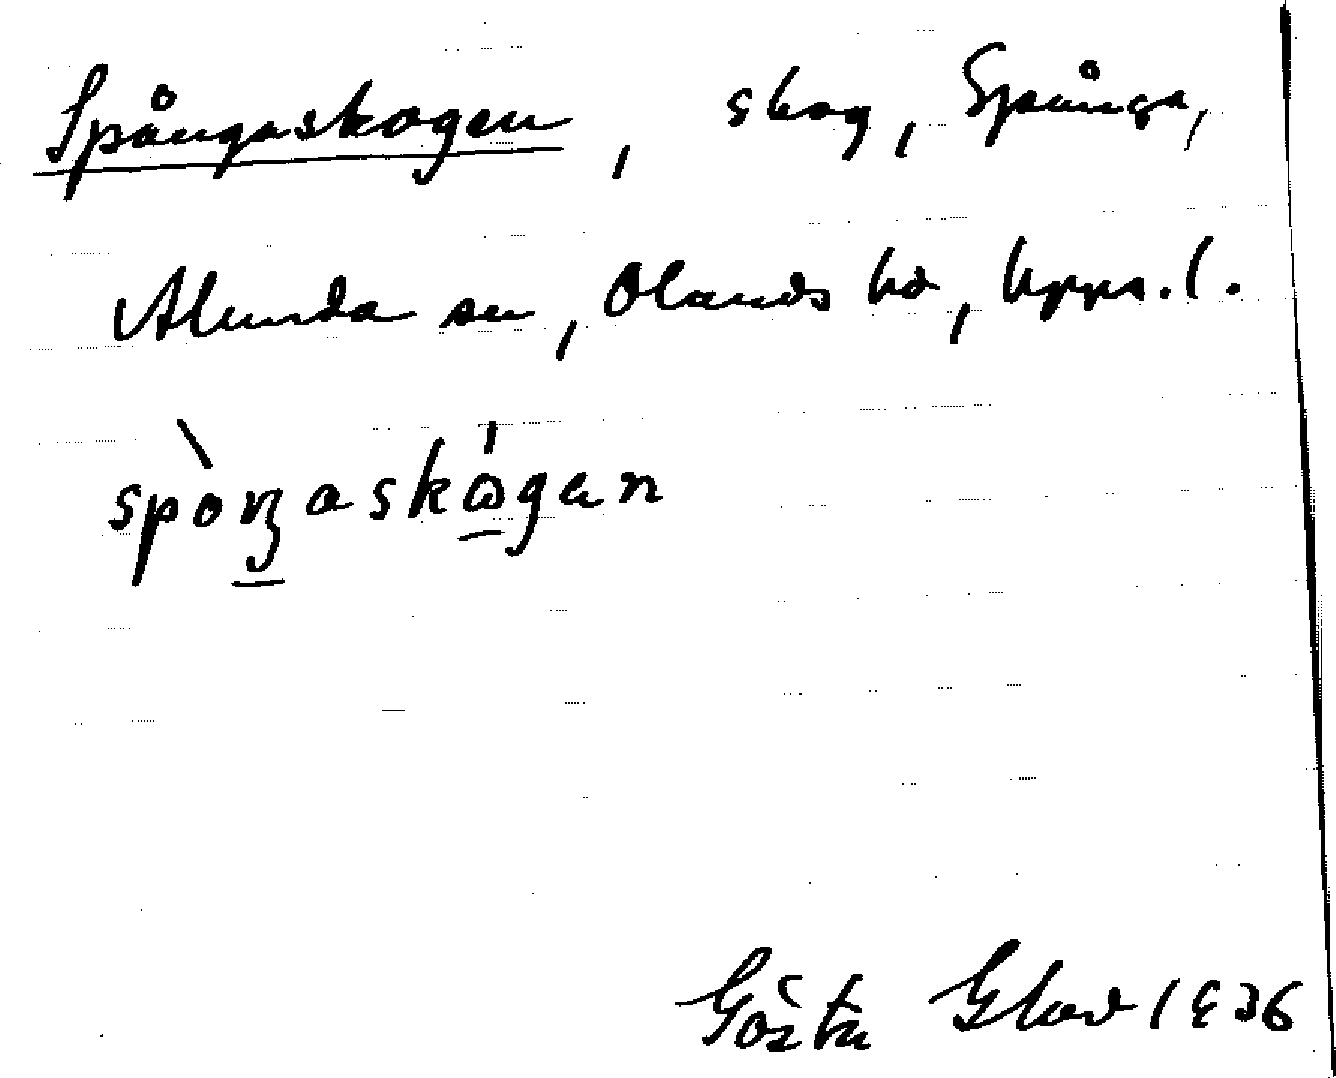 Spångaskogen, skog, Spånga,
Alunda sn, Olands hd, Upps. l.
spòŋaskógan
Gösta Ekov 1936